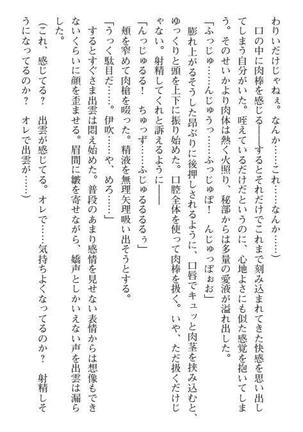 わりぃだけじゃねぇ。なんか……これ……なんか……
口の中に肉棒を感じる――するとそれだけでこれまで刻み込まれてきた快感を思い出し
てしまう自分がいた。咥えているだけだというのに、心地よさにも似た感覚を抱いてしま
う。そのせいかより肉体は熱く火照り、秘部からは多量の愛液が溢れ出した。
「ふっじゅ……んじゅうっ……ふっじゅぽ！　んじゅっぽぉお」
膨れ上がるそうした昂ぶりに後押しされるように、口唇でキュッと肉茎を挟み込むと、
ゆっくりと頭を上下に振り始めた。口腔全体を使って肉棒を扱く。いや、ただ扱くだけじ
ゃない。射精してくれと訴えるように――
「んっじゅるるる！　ちゅっず……っじゅるるるるぅ」
頬を窄めて肉槍を啜った。精液を無理矢理吸い出そうとする。
「うっく駄目だ……。伊吹……や、めろ……」
するとすぐさま出雲は悶え始めた。普段のあまり感情を見せない表情からは想像もでき
ないくらいに顔を歪ませる。眉間に皺を寄せながら、嬌声としかいえない声を出雲は漏ら
した。
（これ、感じてる？　出雲が感じてる。オレで……気持ちよくなってるのか？　射精しそ
うになってるのか？　オレで出雲が……）